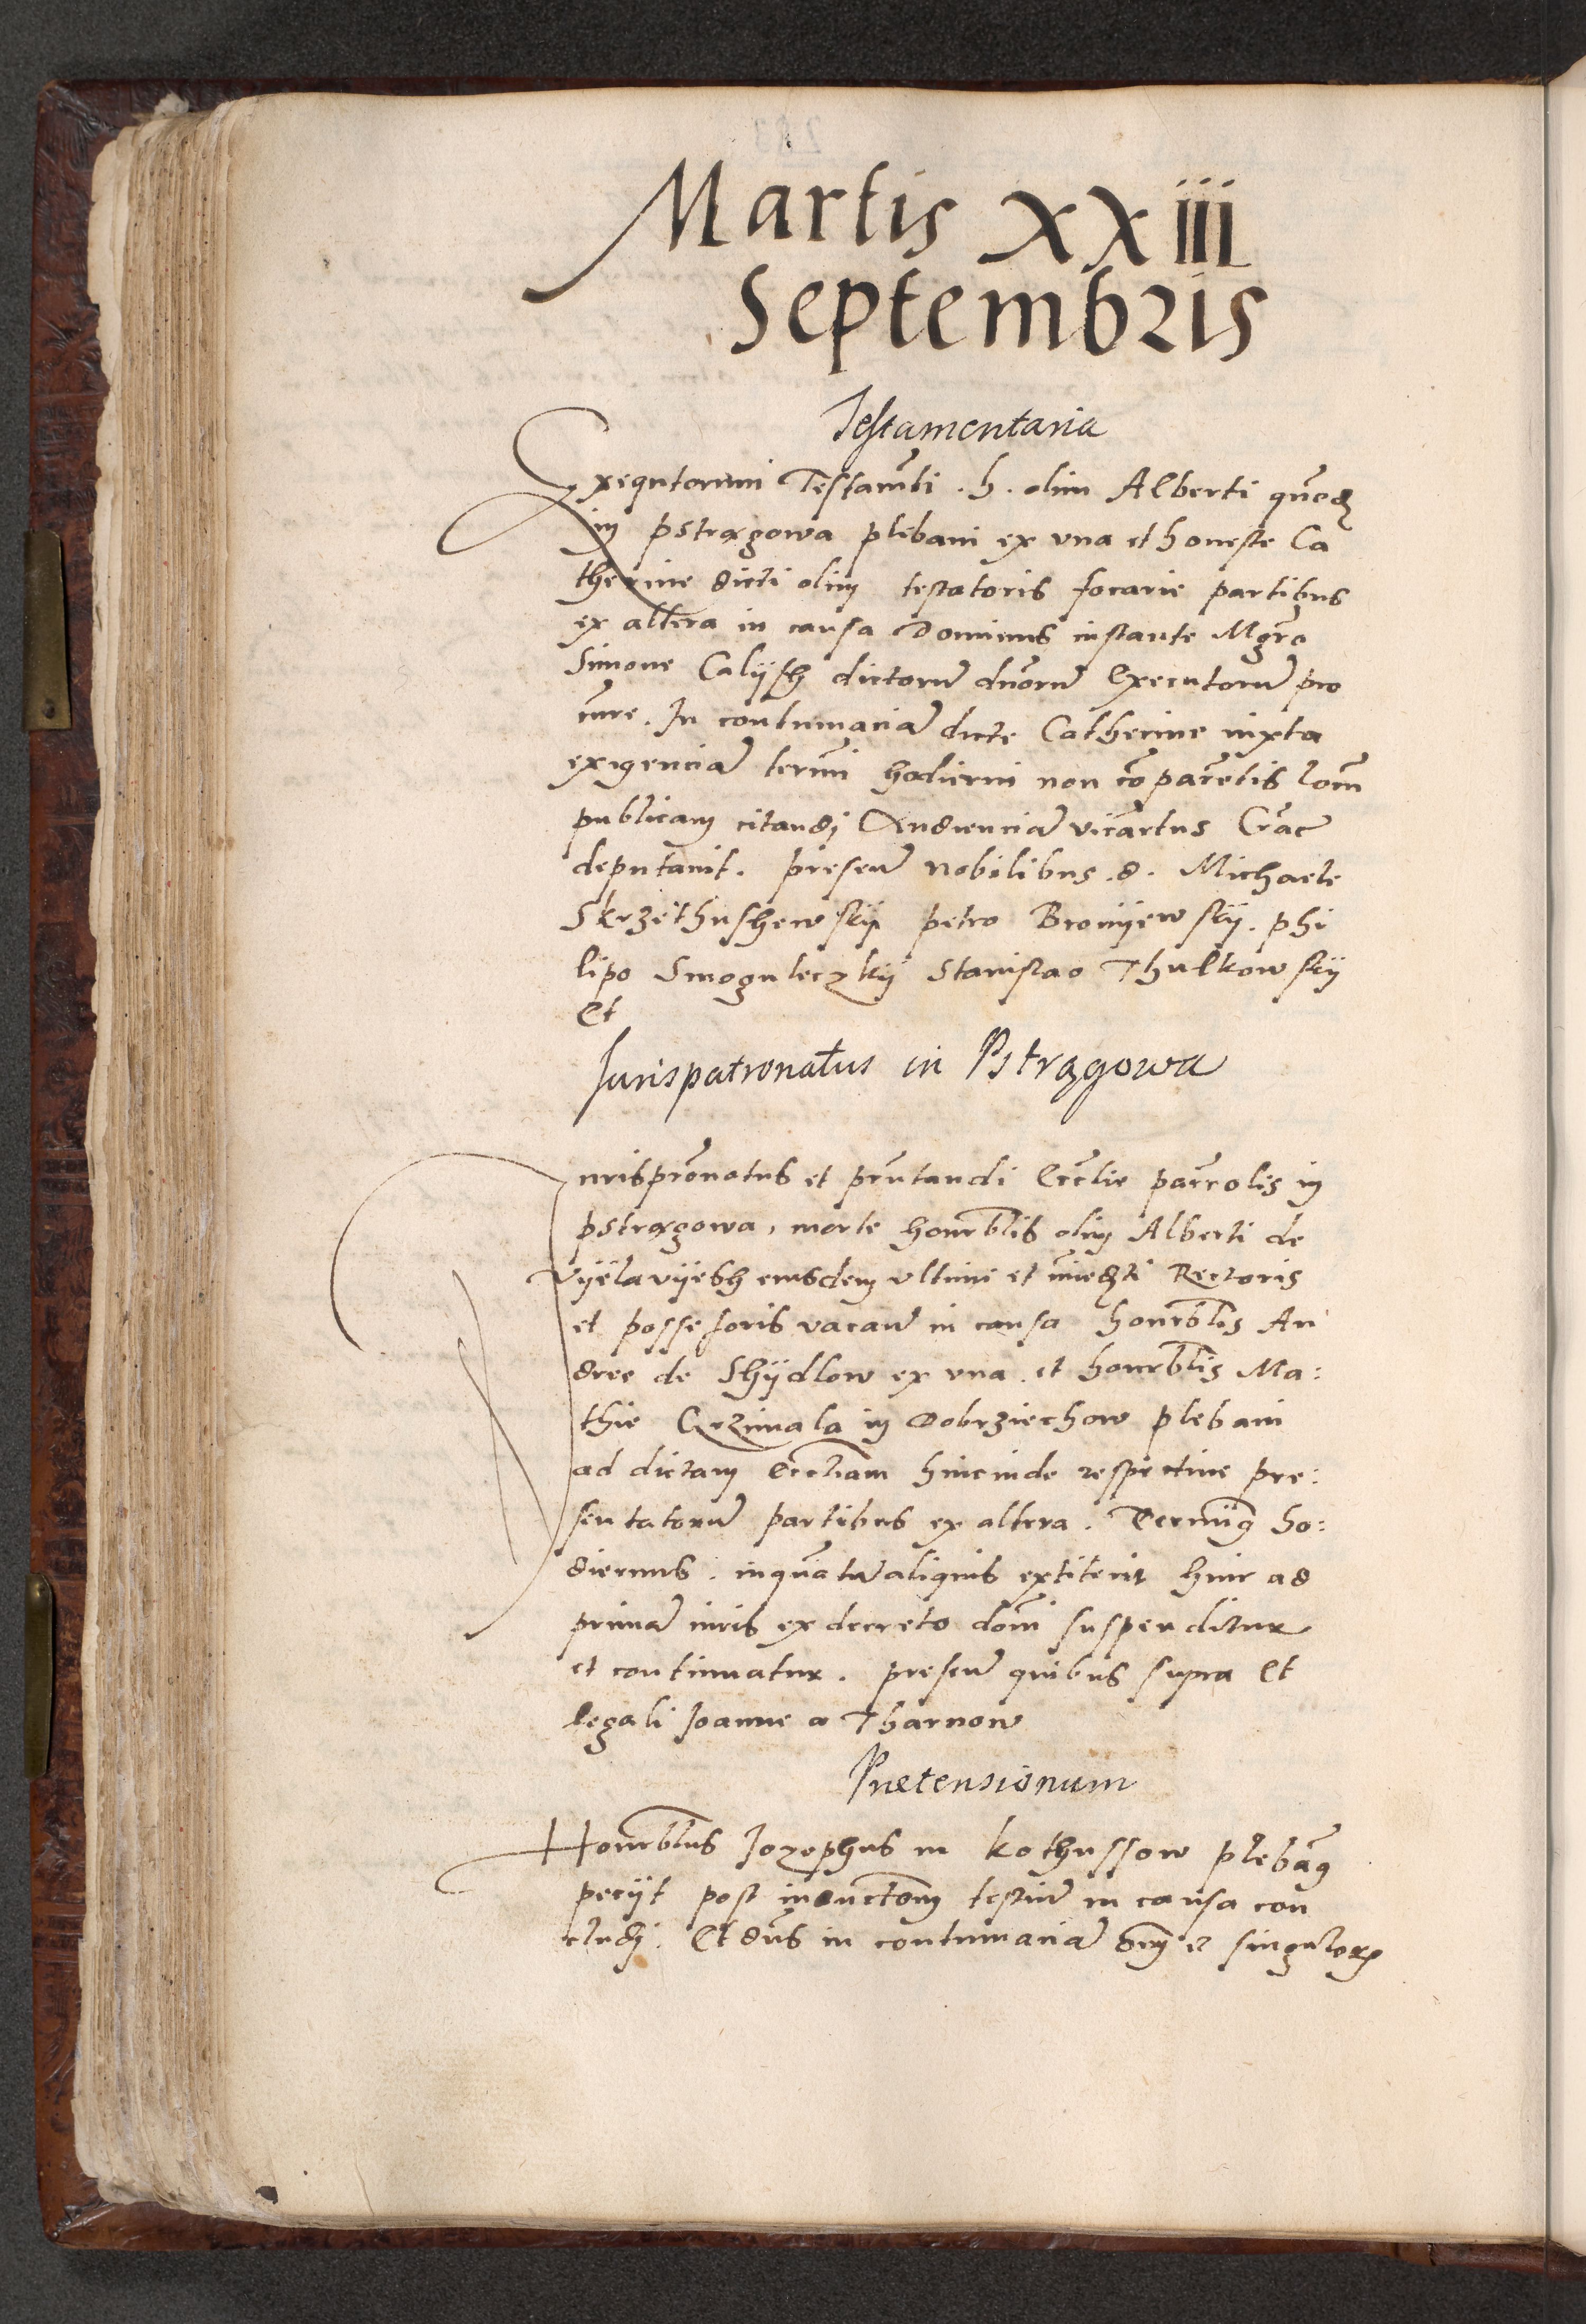 Martis XXIII
Septembris
Testamentaria
Exequtorum Testamēti . h . olim Alberti quōd
in pstrągowa plebani ex vna et honeste Ca
therine dicti olim testatoris focarie partibus
ex altera in causa Dominus instante Mgrō
Simone Calijsh dictorū dnōrū Executorū pro
cure . In contumaciā dicte Catherine iuxta
exigenciā termī hodierni non cōparētis
publicam citandj Audienciā vicārtus Crac
deputauit . presentī nobilibus . d . Michaele
Skrzethushewskij petro Bronijewskij . phi
lipo Smoguleczkij Stanislao Thulkowskij
Et
Jurispatronatus in Pstrągowa
Jurisprōnatus et prntandi Ecclie parrolis in
pstrągowa, morte honrblis olim Alberti de
Vijelavijesh eiusdem vltimi et Rectoris
et possessoris vacan in causa honrblis An
dree de Shijdlow ex vna . et honrblis Ma:
thie Grzimala in Dobrziechow plebani
ad dictam Eccliam hincinde respectiue pre:
sentatorū partibus ex altera . Terminꝰ ho:
diernus . inquātū aliquis extiterit hinc ad
primā iuris ex decreto domī suspenditur
et continuatur . presentī quibus supra Et
legali Joanne a Tharnow
Prætensionum
Honrblus Jozephus in Kothussow plebāꝰ
peciit post inductōm testiū in causa con
cludj . Et dn̄s in contumaciā om̄j et singulorꝝ